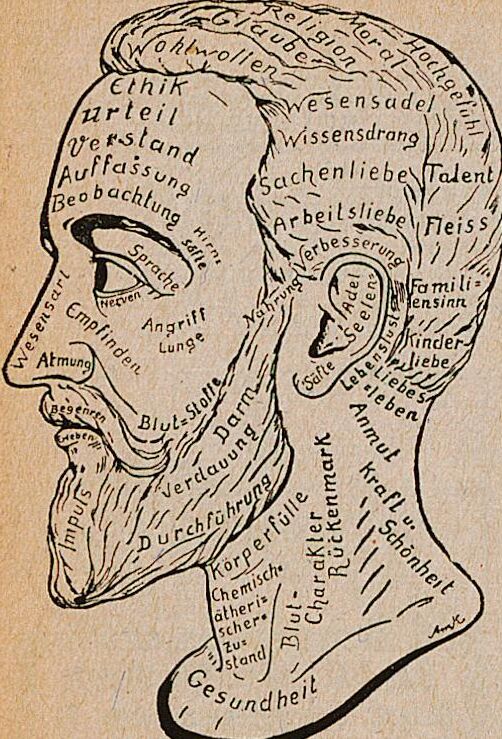 Religion
Moral
Hochgefühl
Glaube
Wohlwollen
Ethik
Urteil
Verstand
Auffassung
Beobachtung
Wesensadel
Wissensdrang
Sachenliebe
Talent
Arbeitsliebe
Fleiss
Verbesserung
Hirn=
säfte
Sprache
Nerven
Nahrung
Adel
Seelen=
Famili=
ensinn
Kinder
liebe
Lebenslust
Liebes
=leben
Säfte
Wesensart
Empfinden
Angriff
Lunge
Atmung
Begehren
Blut=Stoffe
Darm
Verdauung
Durchführung
Impuls
Anmut
Kraft u.
Schönheit
Körperfülle
Rückenmark
Charakter
Blut-
Chemisch=
ätheri=
scher=
Zu=
stand
Gesundheit